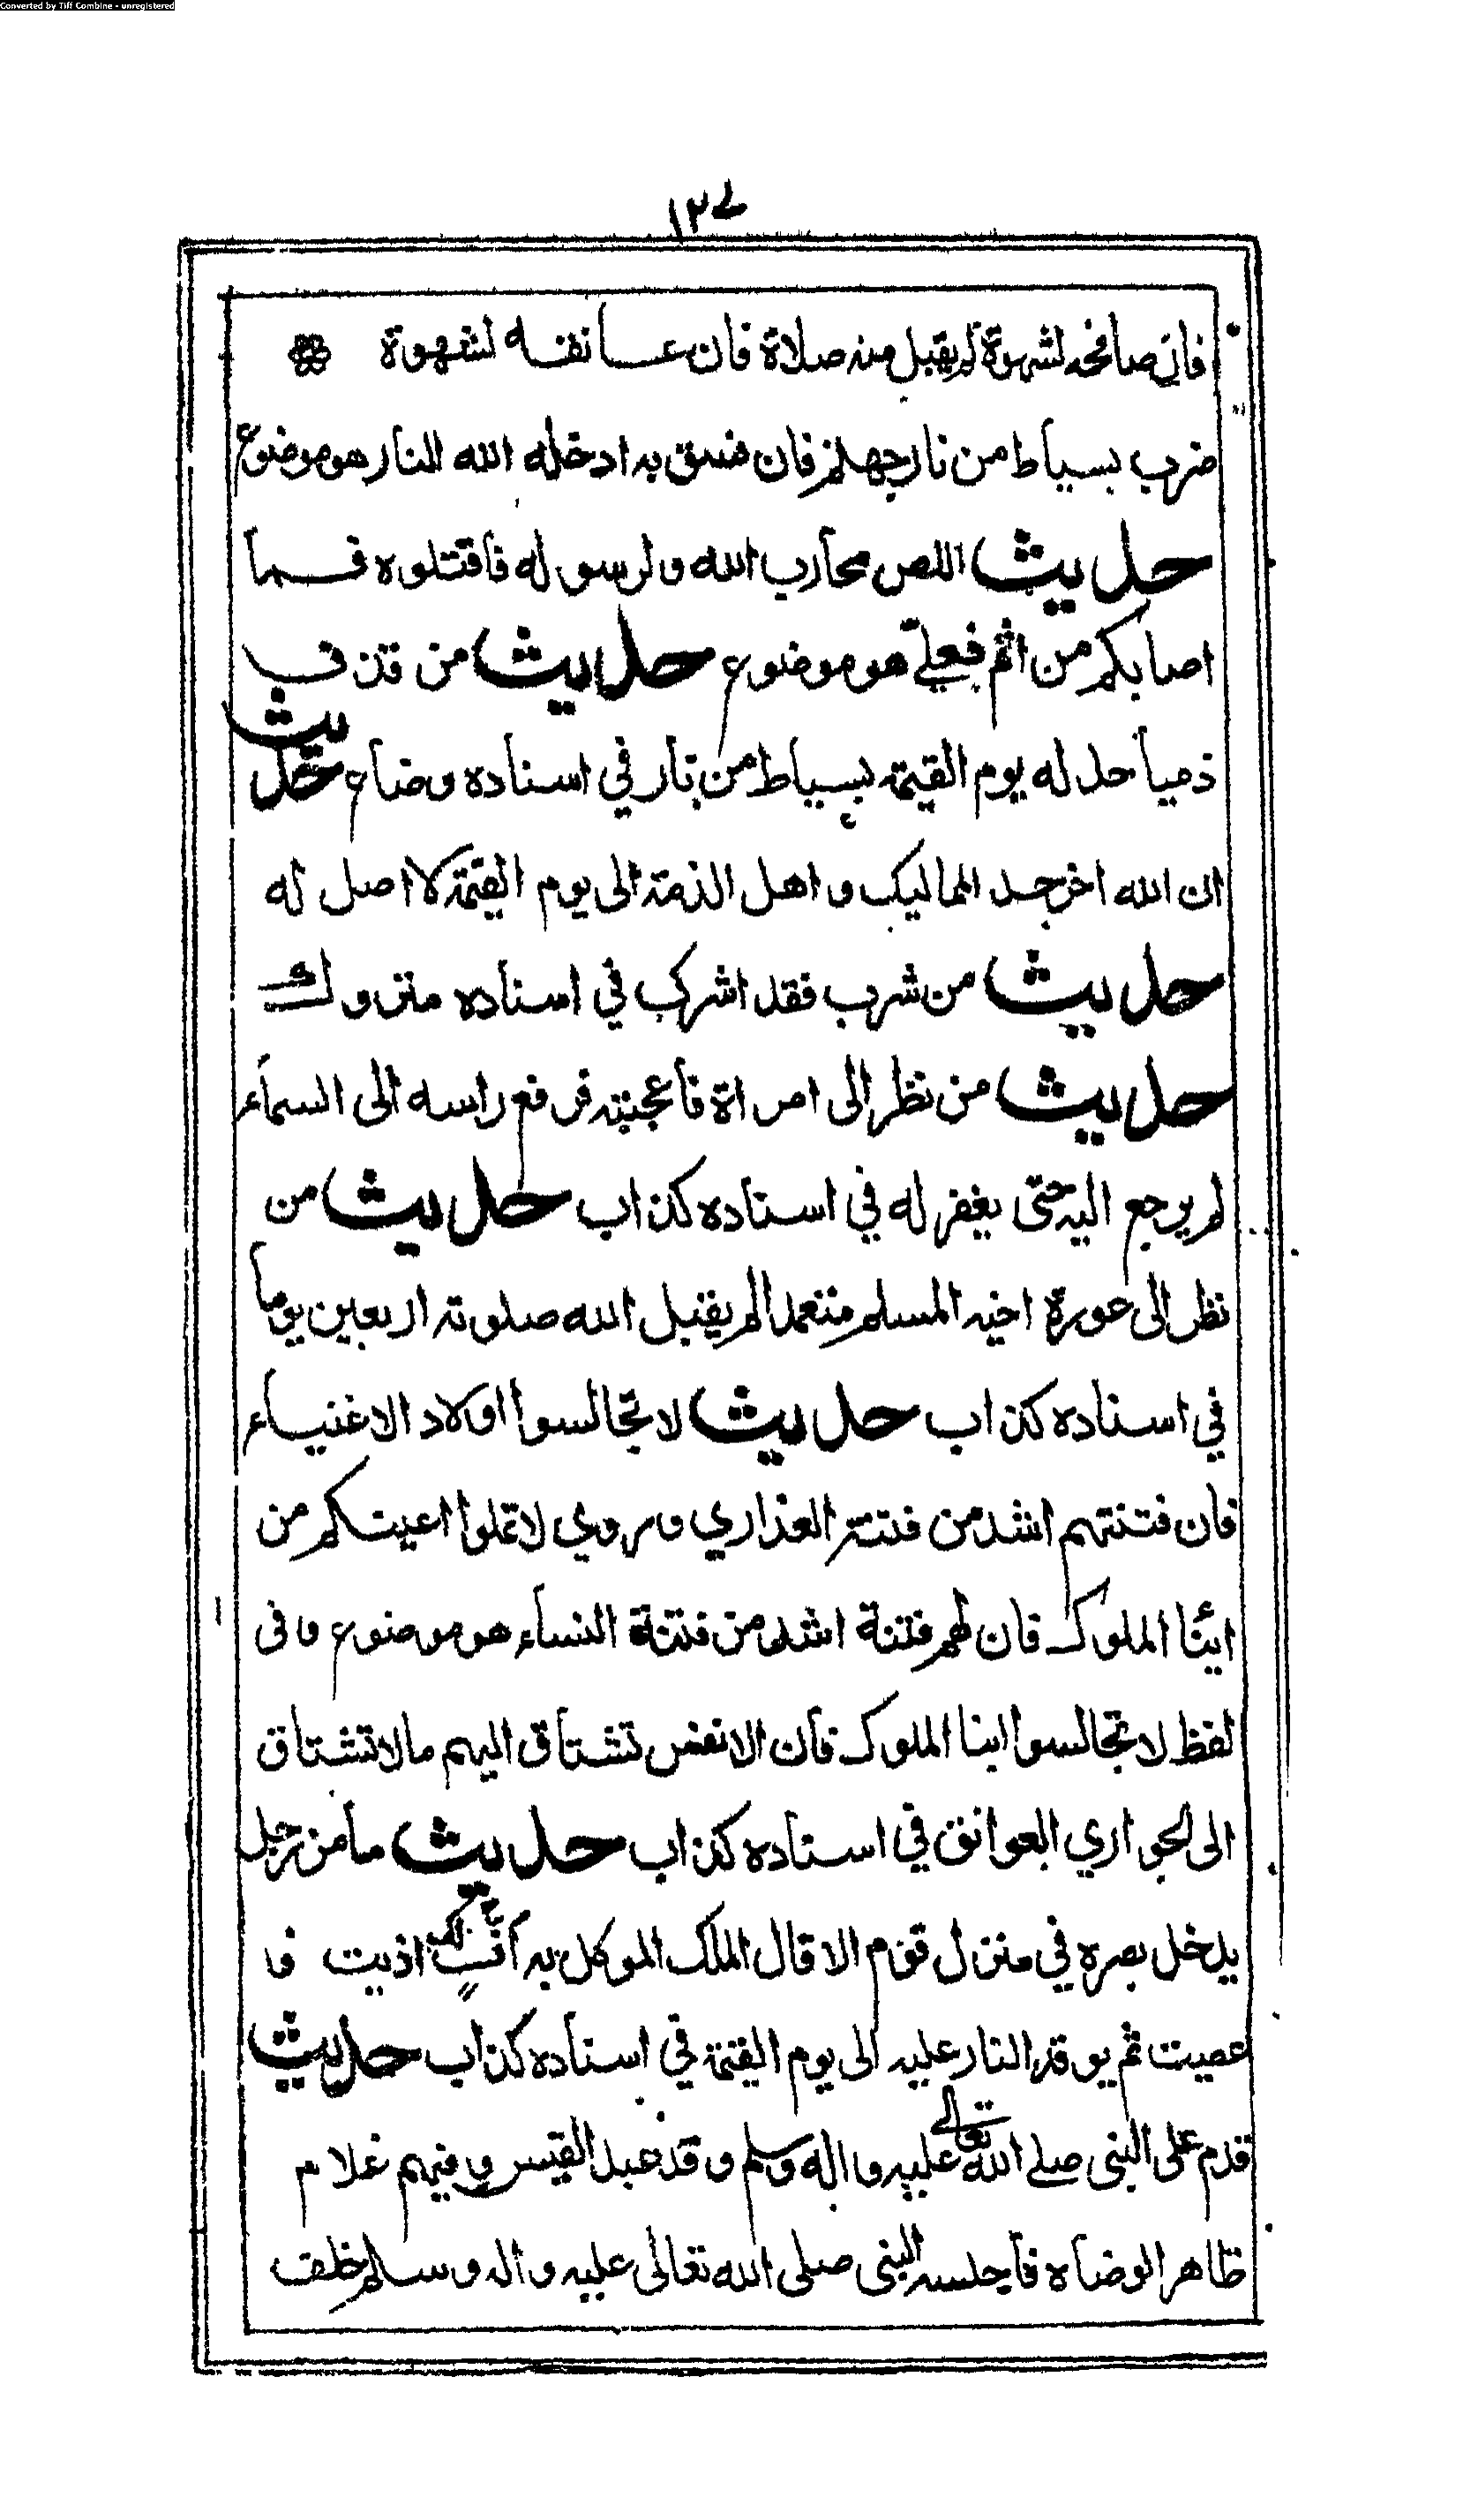 Converted by Tiff Combine - unregistered
١٣٧
فان صافحه لشهوة لم يقبل منه صلاة فان عانقه لشهوة
ضرب بسياط من نار جهنم فان فسق به ادخله الله النار هو موضوع
حديث اللص محارب الله ولرسوله فاقتلوه فما
اصابكم من اثم فعلي هو موضوع حديث من قذف
ذميا حد له يوم القيمة بسياط من نار في اسناده وضاع حديث
ان الله اخر حد المماليك واهل الذمة الى يوم القيمة لا اصل له
حديث من شرب فقد اشرك في اسناده متروك
حديث من نظر الى امراة فاعجبته فرفع راسه الى السماء
لم يرجع اليه حتى يغفر له في اسناده كذاب حديث من
نظر الى عورة اخيه المسلم متعمدا لم يقبل الله صلوته اربعين يوما
في اسناده كذاب حديث لا تجالسوا اولاد الاغنياء
فان فتنتهم اشد من فتنة العذاري وروي لا تملوا اعينكم من
ابنا الملوك فان لهم فتنة اشد من فتنة النساء هو موضوع وفى
لفظ لا تجالسوا ابنا الملوك فان الانفس تشتاق اليهم مالا تشتاق
الى الجواري العواتق في اسناده كذاب حديث ما من رجل
يدخل بصره في منزل قوم الا قال الملك الموكل به اف لك اذيت و
عصيت ثم يوقد النار عليه الى يوم القيمة في اسناده كذاب حديث
قدم على النبى صلى الله تعالى عليه واله وسلم وفد عبد القيس وفيهم غلام
ظاهر الوضاة فاجلسه النبى صلى الله تعالى عليه واله وسلم خلف